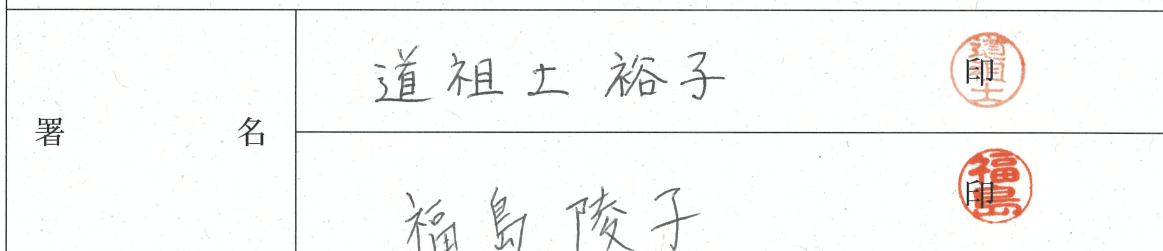 署名
道祖土 裕子 印
道祖土
福島 陵子 印
福島